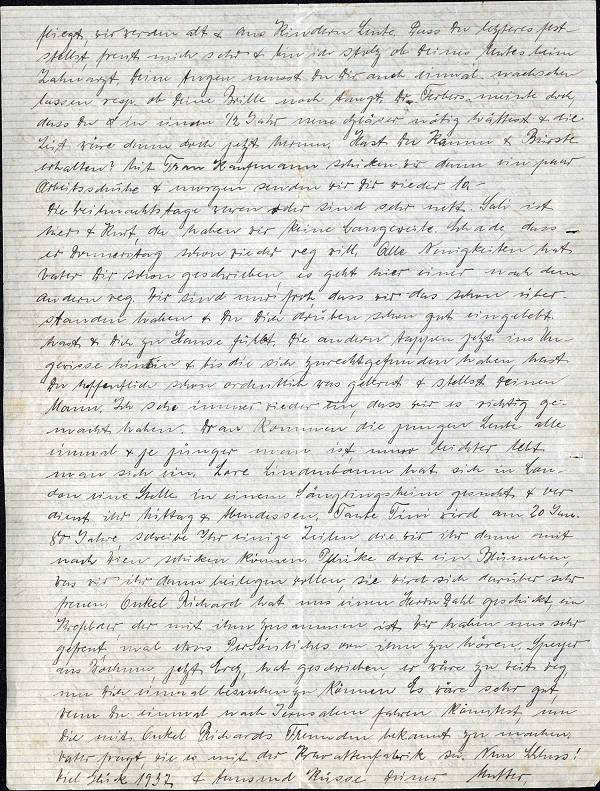 fliegt, wir werden alt & aus Kindern Leute. Dass Du letzteres fest-
stellst freut mich sehr & bin ich stolz ob Deines Mutes beim
Zahnarzt. Deine Augen musst Du Dir auch einmal nachsehen
lassen resp. ob Deine Brille noch taugt. Dr. meinte doch,
dass Du in einem 1/2 Jahr neue Gläser nötig hättest & die
Zeit wäre denn doch jetzt herum. Hast Du Kamm & Bürste
erhalten? Mit Frau Kaufmann schicken wir dann ein paar
Arbeitsschuhe & morgen senden wir Dir wieder 10.-
Die Weihnachtstage waren oder sind sehr nett. ist
hier & Kurt, da haben wir keine Langeweile. Schade, dass
er Donnerstag schon wieder weg will. Alle Neuigkeiten hat
Vater Dir schon geschrieben, es geht hier einer nach dem
andern weg. Wir sind nur froh, dass wir das schon über-
standen haben & Du Dich drüben schon gut eingelebt
hast & Dich zu Hause fühlst. Die andern tappen jetzt ins Un-
gewisse hinein & bis die sich zurechtgefunden haben, hast
Du hoffentlich schon ordentlich was gelernt & stellst Deinen
Mann. Ich sehe immer wieder ein, dass wir es richtig ge-
macht haben. Dran kommen die jungen Leute alle
einmal & je jünger man ist leichter lebt
man sich ein. Lore Lindenbaum hat sich in Lon-
don eine Stelle in einem Säuglingsheim gesucht & ver-
dient ihr Mittag & Abendessen. Tante wird am 20 Jan.
Jahre, schreibe Ihr einige Zeilen die wir ihr dann mit
nach Wien schicken können. Pflücke dort ein Blümchen,
was wir ihr dann beilegen wollen, sie wird sich darüber sehr
freuen. Onkel Richard hat uns einen Herrn Dahl geschickt, ein
der mit ihm zusammen ist. Wir haben uns sehr
gefreut, mal etwas Persönliches von ihm zu hören. Speyer
aus Bochum, jetzt Erez, hat geschrieben er wäre zu weit weg,
um Dich einmal besuchen zu können. Es wäre sehr gut,
wenn Du einmal nach Jerusalem fahren könntest, um
Die mit Onkel Richards Freunden bekannt zu machen.
Vater fragt, wie es mit der Krawattenfabrik sei. Nun Schluss!
Viel Glück 1937 & tausend Küsse Deiner Mutter.